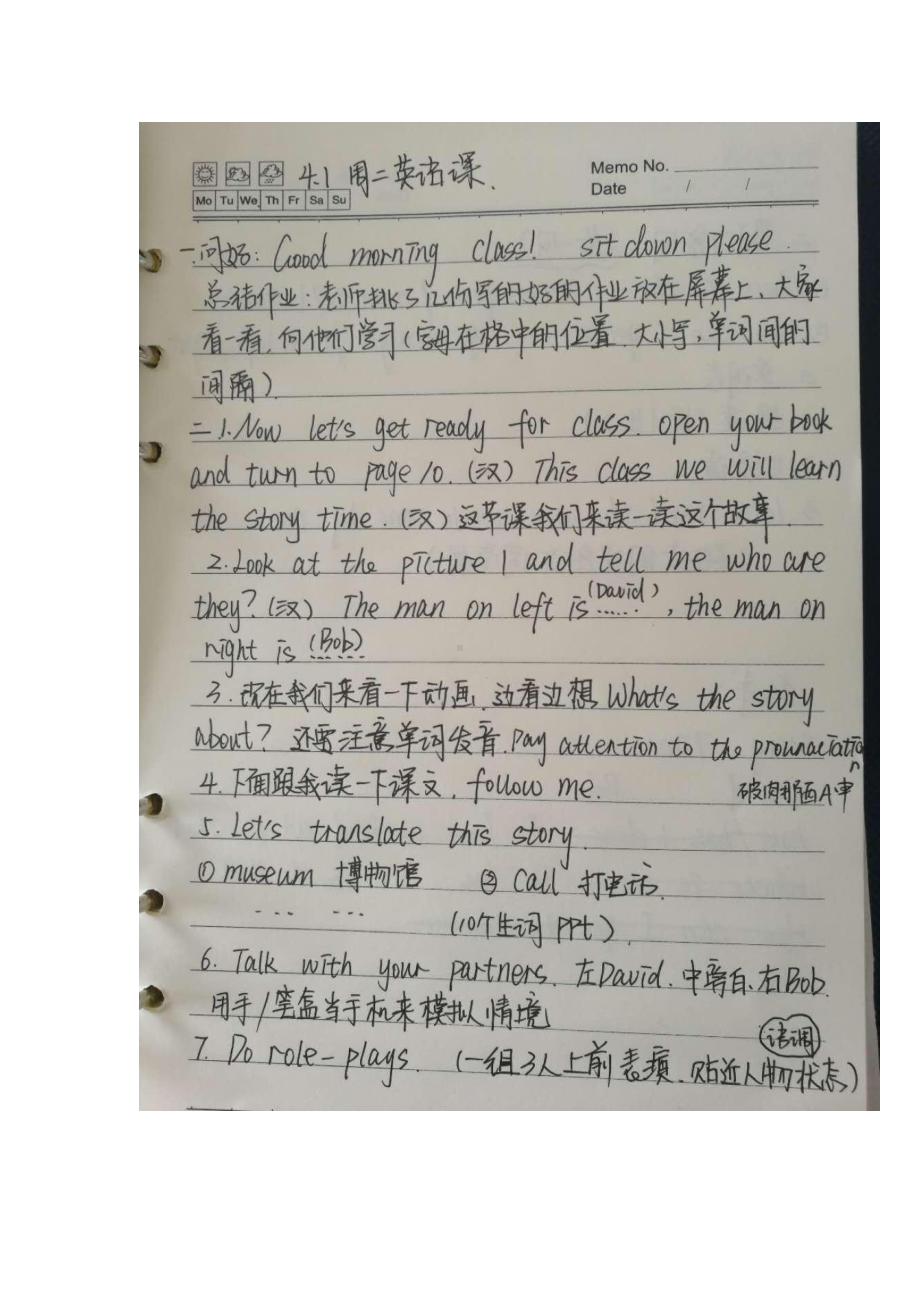 4.1 周二英语课.
Memo No.
Date / /
Mo Tu We Th Fr Sa Su
一.问好: Good morning class! sit down please.
总结作业:老师挑了几份写的好的作业放在屏幕上、大家
看一看,向他们学习(字母在格中的位置、大小写,单词间的
间隔)
二 1.Now let's get ready for class. open your book
and turn to page 10.(汉) This class we will learn
the story time.(汉)这节课我们来读一读这个故事.
2.Look at the picture 1 and tell me who are
they?(汉) The man on left is (David), the man on
right is (Bob)
3.现在我们来看一下动画,边看边想 What's the story
about? 还要注意单词发音. Pay attention to the prounaciation
4.下面跟我读一下课文, follow me.
破肉那西A申
5. Let's translate this story.
① museum 博物馆 ② call 打电话.
... ...
(10个生词 PPt).
6. Talk with your partners. 左David、中旁白、右Bob.
用手/笔盒当手机来模拟情境
语调
7. Do role-plays. (一组3人上前表演、贴近人物状态)